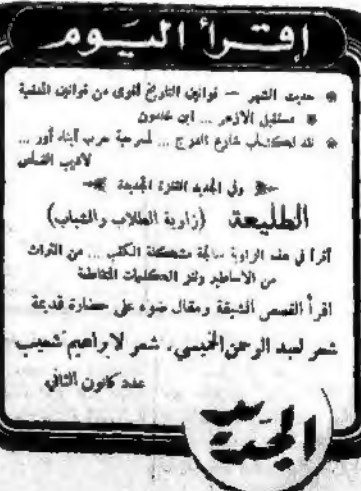 إقرأ اليوم
حديث الشهر — قوانين التاريخ اقوى من قوانين
مستقبل الأزهر ... ابن خلدون
نقد لكتاب شارع الفرج ... لمسرحية حرب أبناء أور ...
لاديب القباني
وفي الجديد الفترة الجديدة
الطليعة (زاوية الطلاب والشباب)
أقرأ في هذه الزاوية مشكلة الكتب ... من التراث
من الاساطير الكليات
اقرأ القصص الشيقة ومقال ضوء على حضارة قديمة
شعر لعبد الرحمن الخميسي، شعر لابراهيم شعيب
عدد كانون الثاني
الجديد